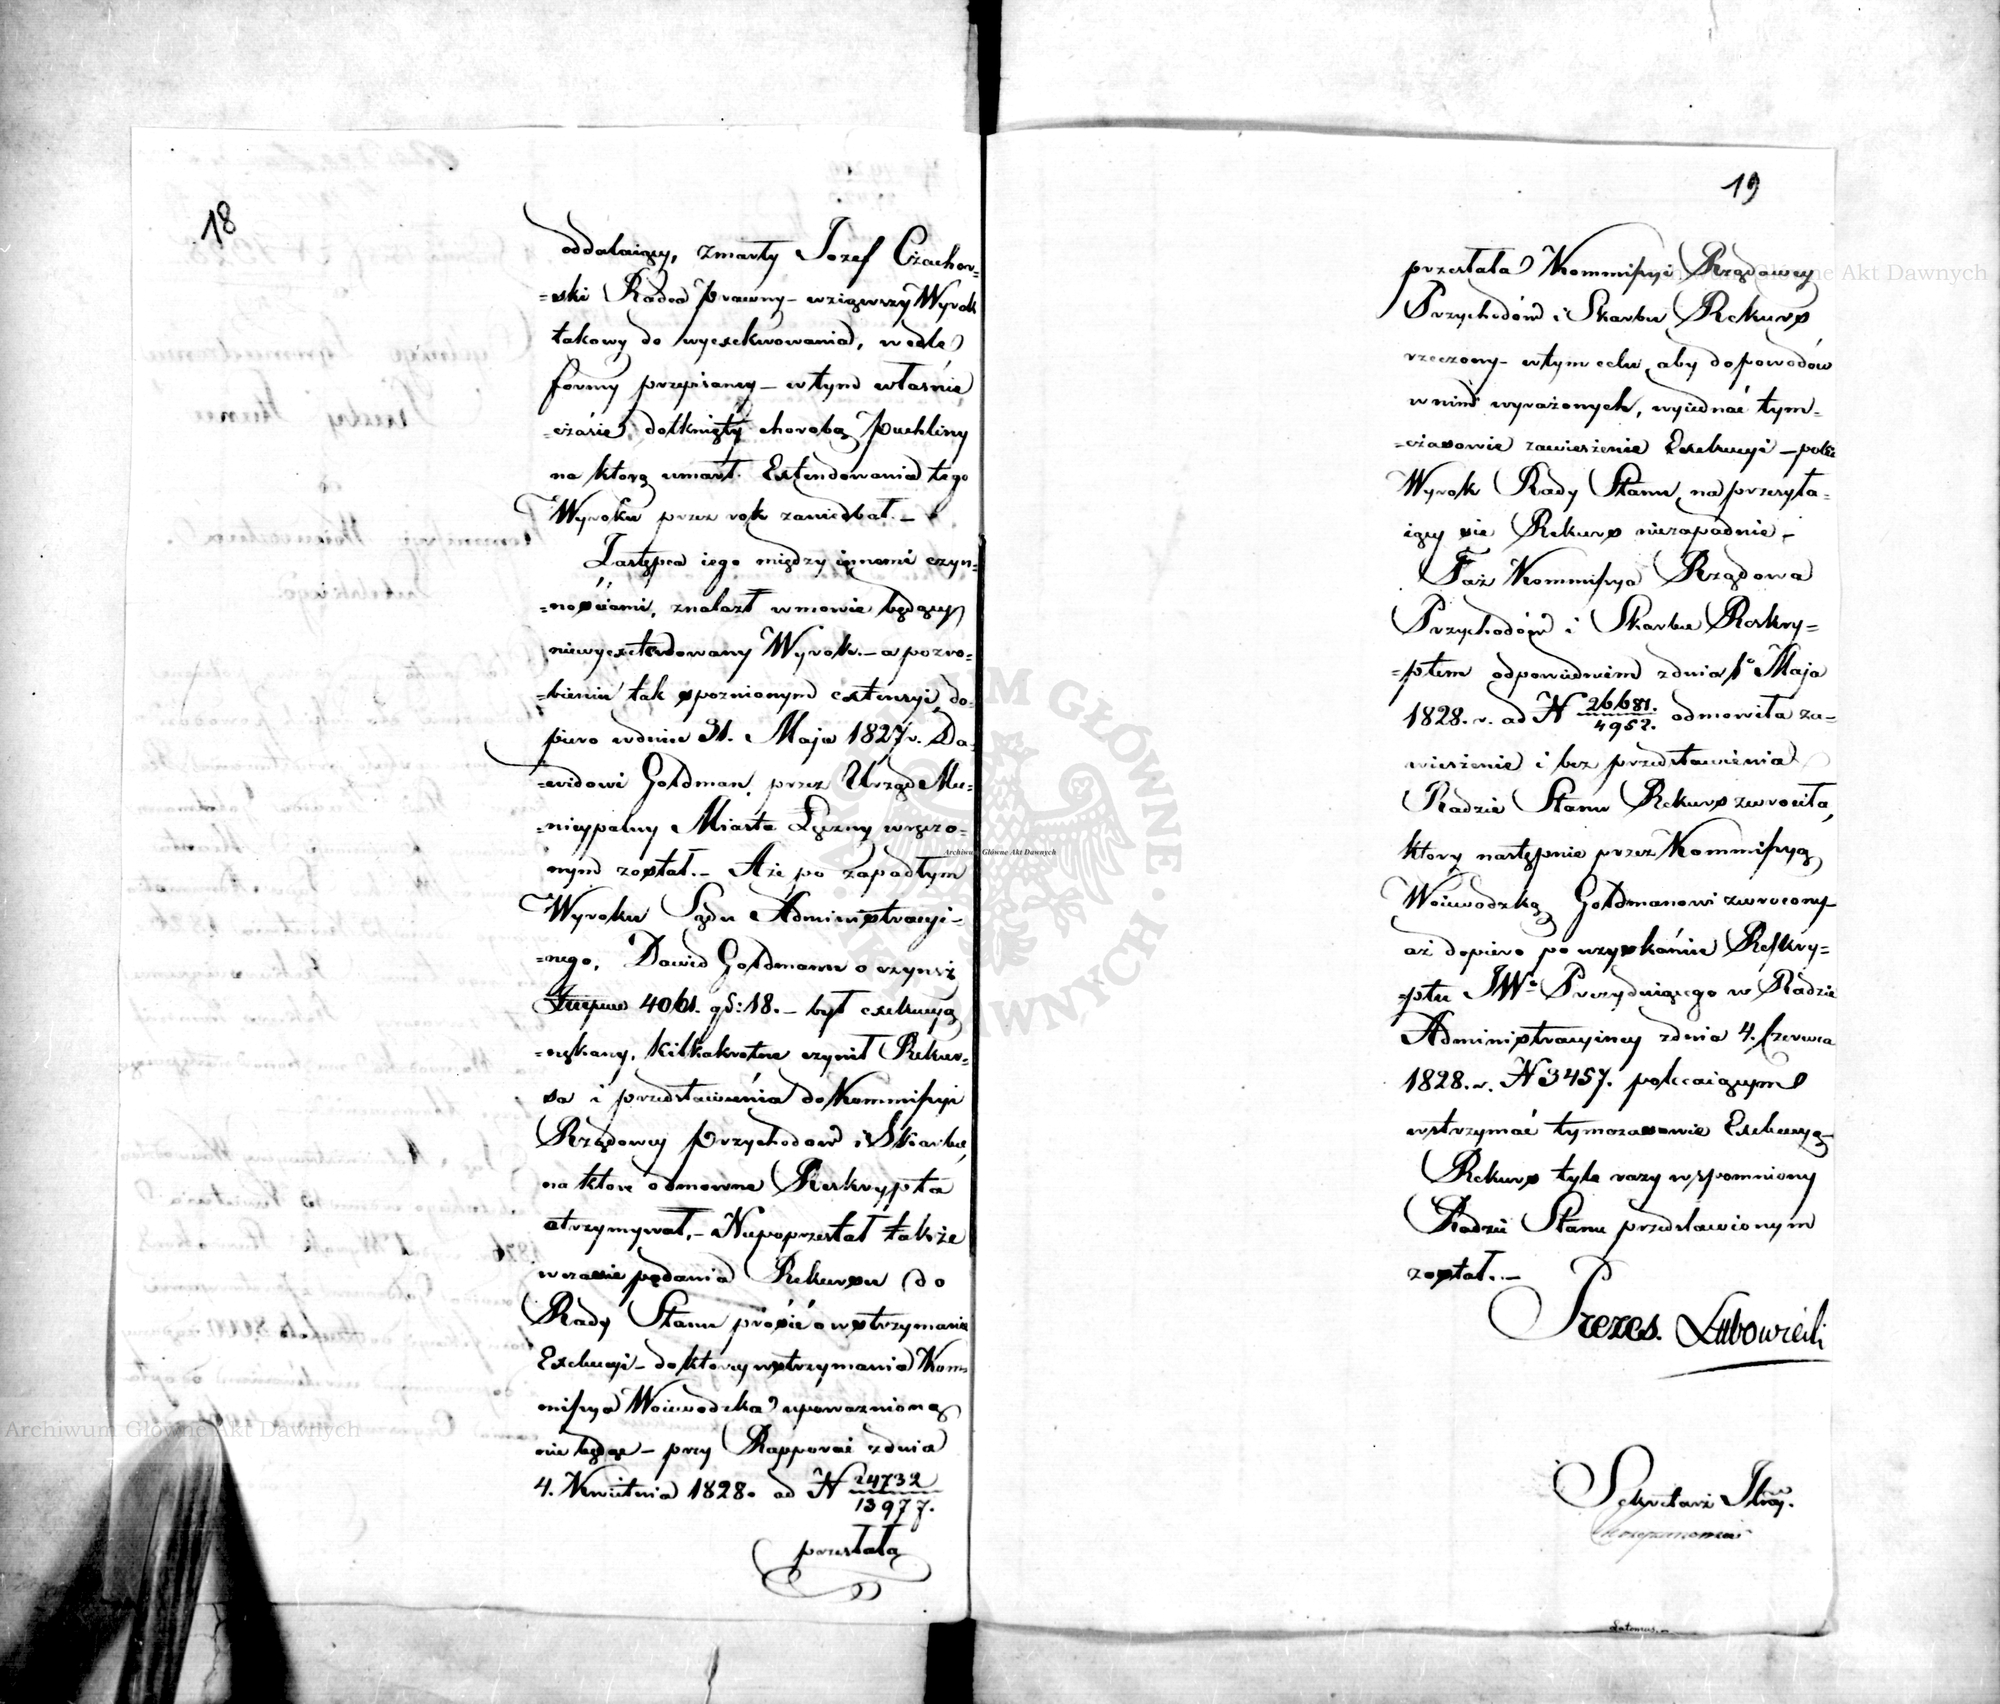 18
oddalaiący, zmarły Jozef Czachor-
=ski Radca Prawny – wziąwszy Wyrok
takowy do wyexekwowania, wedle
formy przepisaney – w tym właśnie
=czásie, dotknięty chorobą puchliny
na którą umarł. Extendowania tego
Wyroku przez rok zaniedbał. –
Zastępca iego między innemi czyn=
=nościami, znalazł w mowie będący
niewyextendowany Wyrok. – a po zro=
=bieniu tak spoznioney extensyi, do=
piero w dniu 31. Maja 1827 r. Da=
=widowi Goldman, przez Urząd Mu=
=nicypalny Miasta Łęczny wręczo=
nym został. – A że po zapadłym
Wyroku Sądu Administracyi=
=nego, Dawid Goldmann o czynsz
406. gr: 18. – był exekucyą
=nękany, kilkakrotne czynił Rekur=
sa i przedstawienia do Kommissyi
Rządowey Przychodów i Skarbu,
na które odmowne Reskrypta
otrzymywał. – Niepoprzestał także
w czasie podania Rekursu do
Rady Stanu prósić o wstrzymanie
Exekucyi – do którey wstrzymania Kom=
missya Woiewodzka upoważnioną
nie będąc – przy Rapporcie z dnia
4. Kwietnia 1828. ad N 24732/13977.
przesłała
19
przesłała Kommissyi Rządowey
Przychodów i Skarbu Rekurs
rzeczony – w tym celu, aby do powodów
w nim wyrażonych, wyiednać tym=
=czasowie zawieszenie Exekucyi – poki
Wyrok Rady Stanu, na przesyła=
iący się Rekurs niezapadnie. –
Taż Kommissya Rządowa
Przychodów i Skarbu Reskry=
=ptem odpowiednim z dnia 1º Maja
1828. r. ad N 26681./4952. odmówiła za=
wieszenie i bez przedstawienia
Radzie Stanu Rekurs zwrociła,
który następnie przez Kommissyą
Woiewodzką Goldmanowi zwrocony
aż dopiero po uzyskánie Reskry=
=ptu JWº Prezyduiącego w Radzie
Administracyiney z dnia 4. Czerwca
1828. r. N 3457. polecaiącym
wstrzymać tymczasowie Exekucyą –
Rekurs tyle razy wspomniony
Radzie Stanu przedstawionym
został. –
Prezes. Lubowiecki
Sekretarz Jlny.
Archiwum Główne Akt Dawnych
Archiwum Główne Akt Dawnych
Archiwum Główne Akt Dawnych